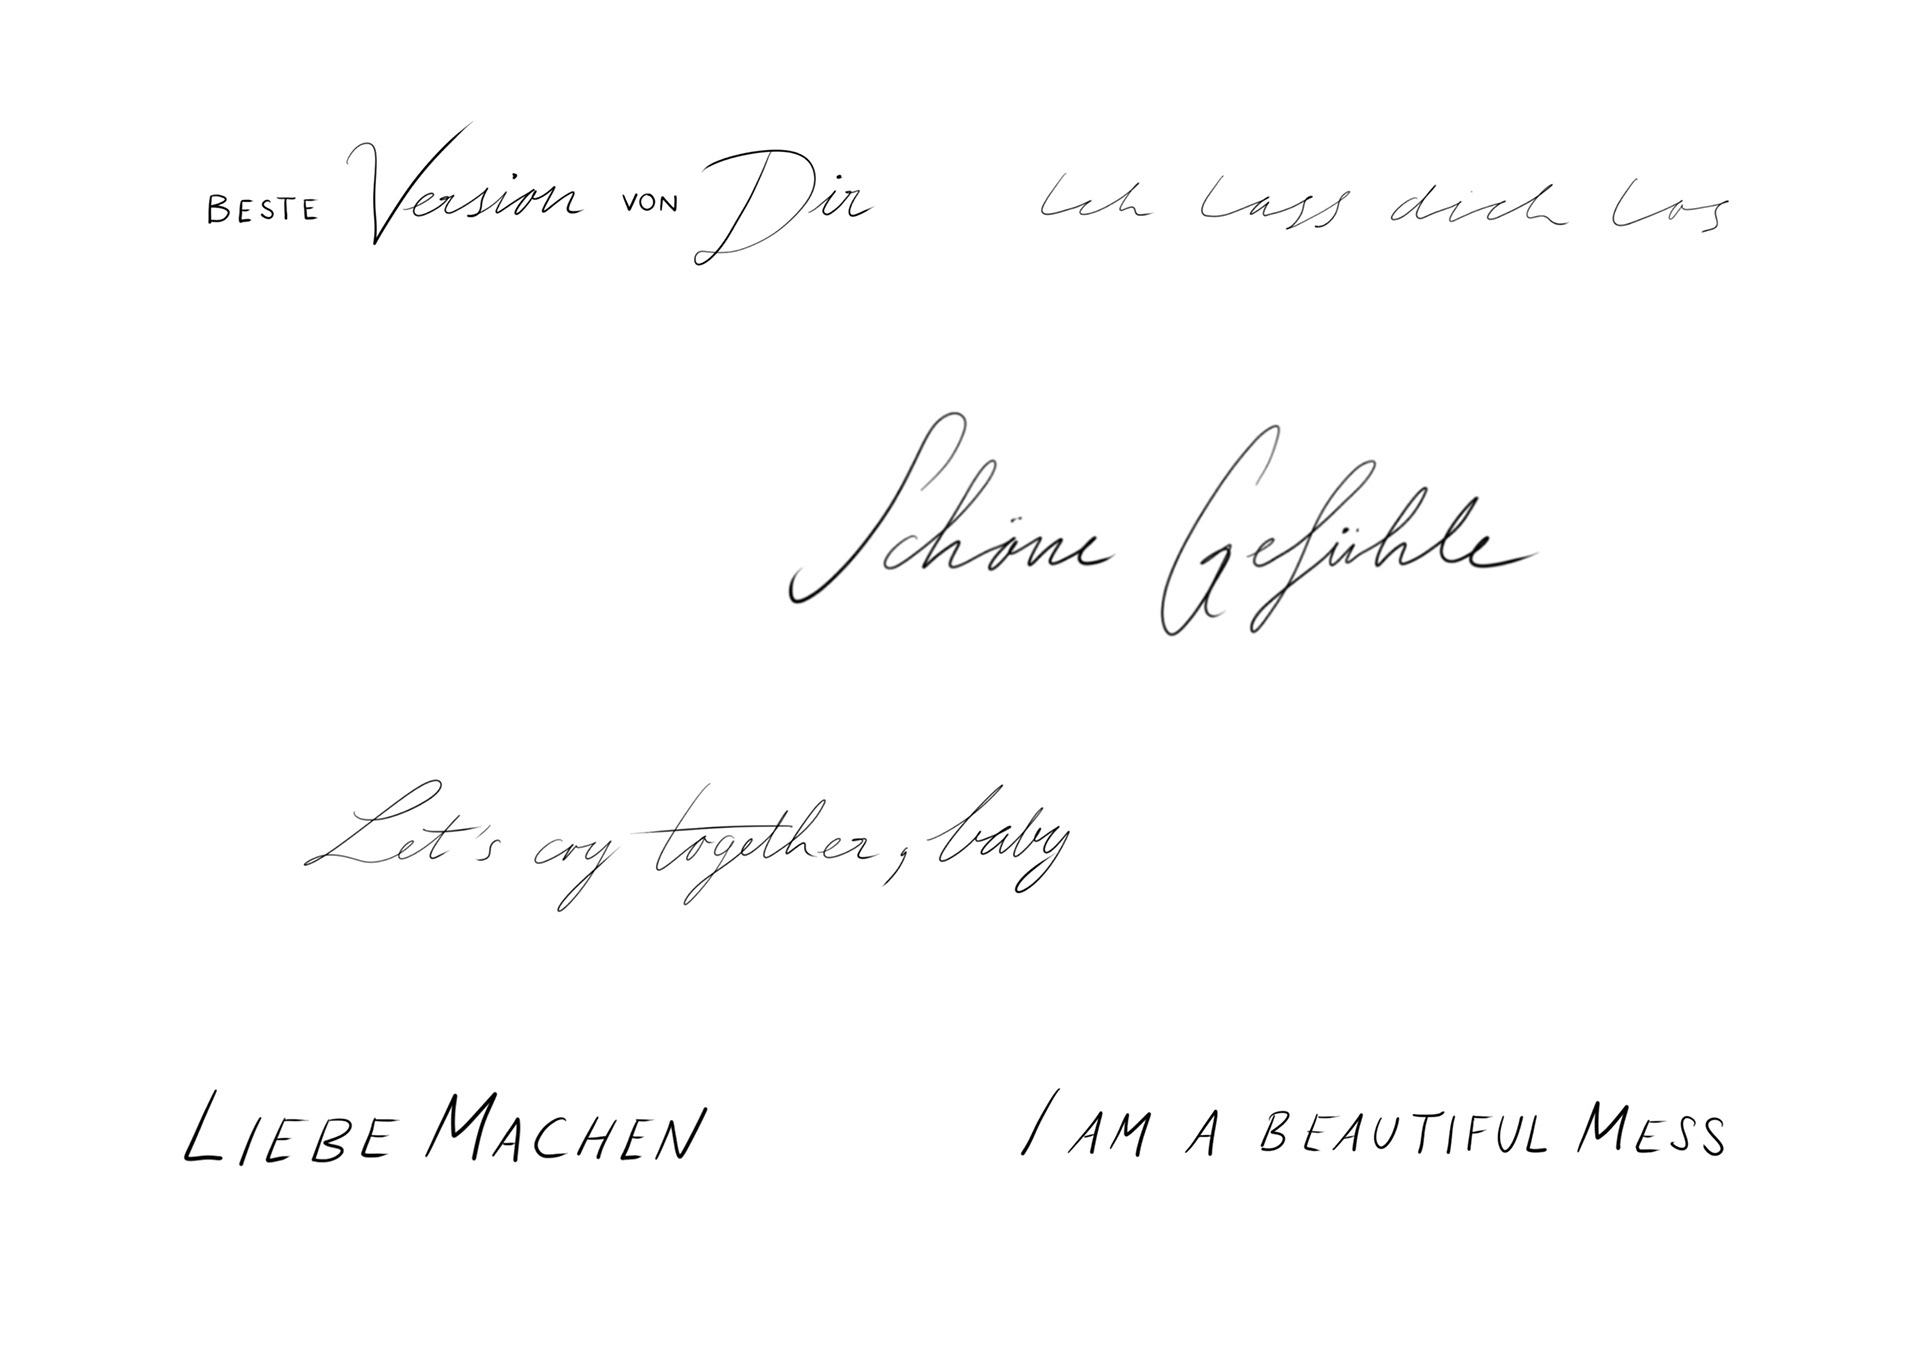 BESTE Version VON Dir
Ich lass dich los
Schöne Gefühle
Let's cry together, baby
LIEBE MACHEN
I AM A BEAUTIFUL MESS